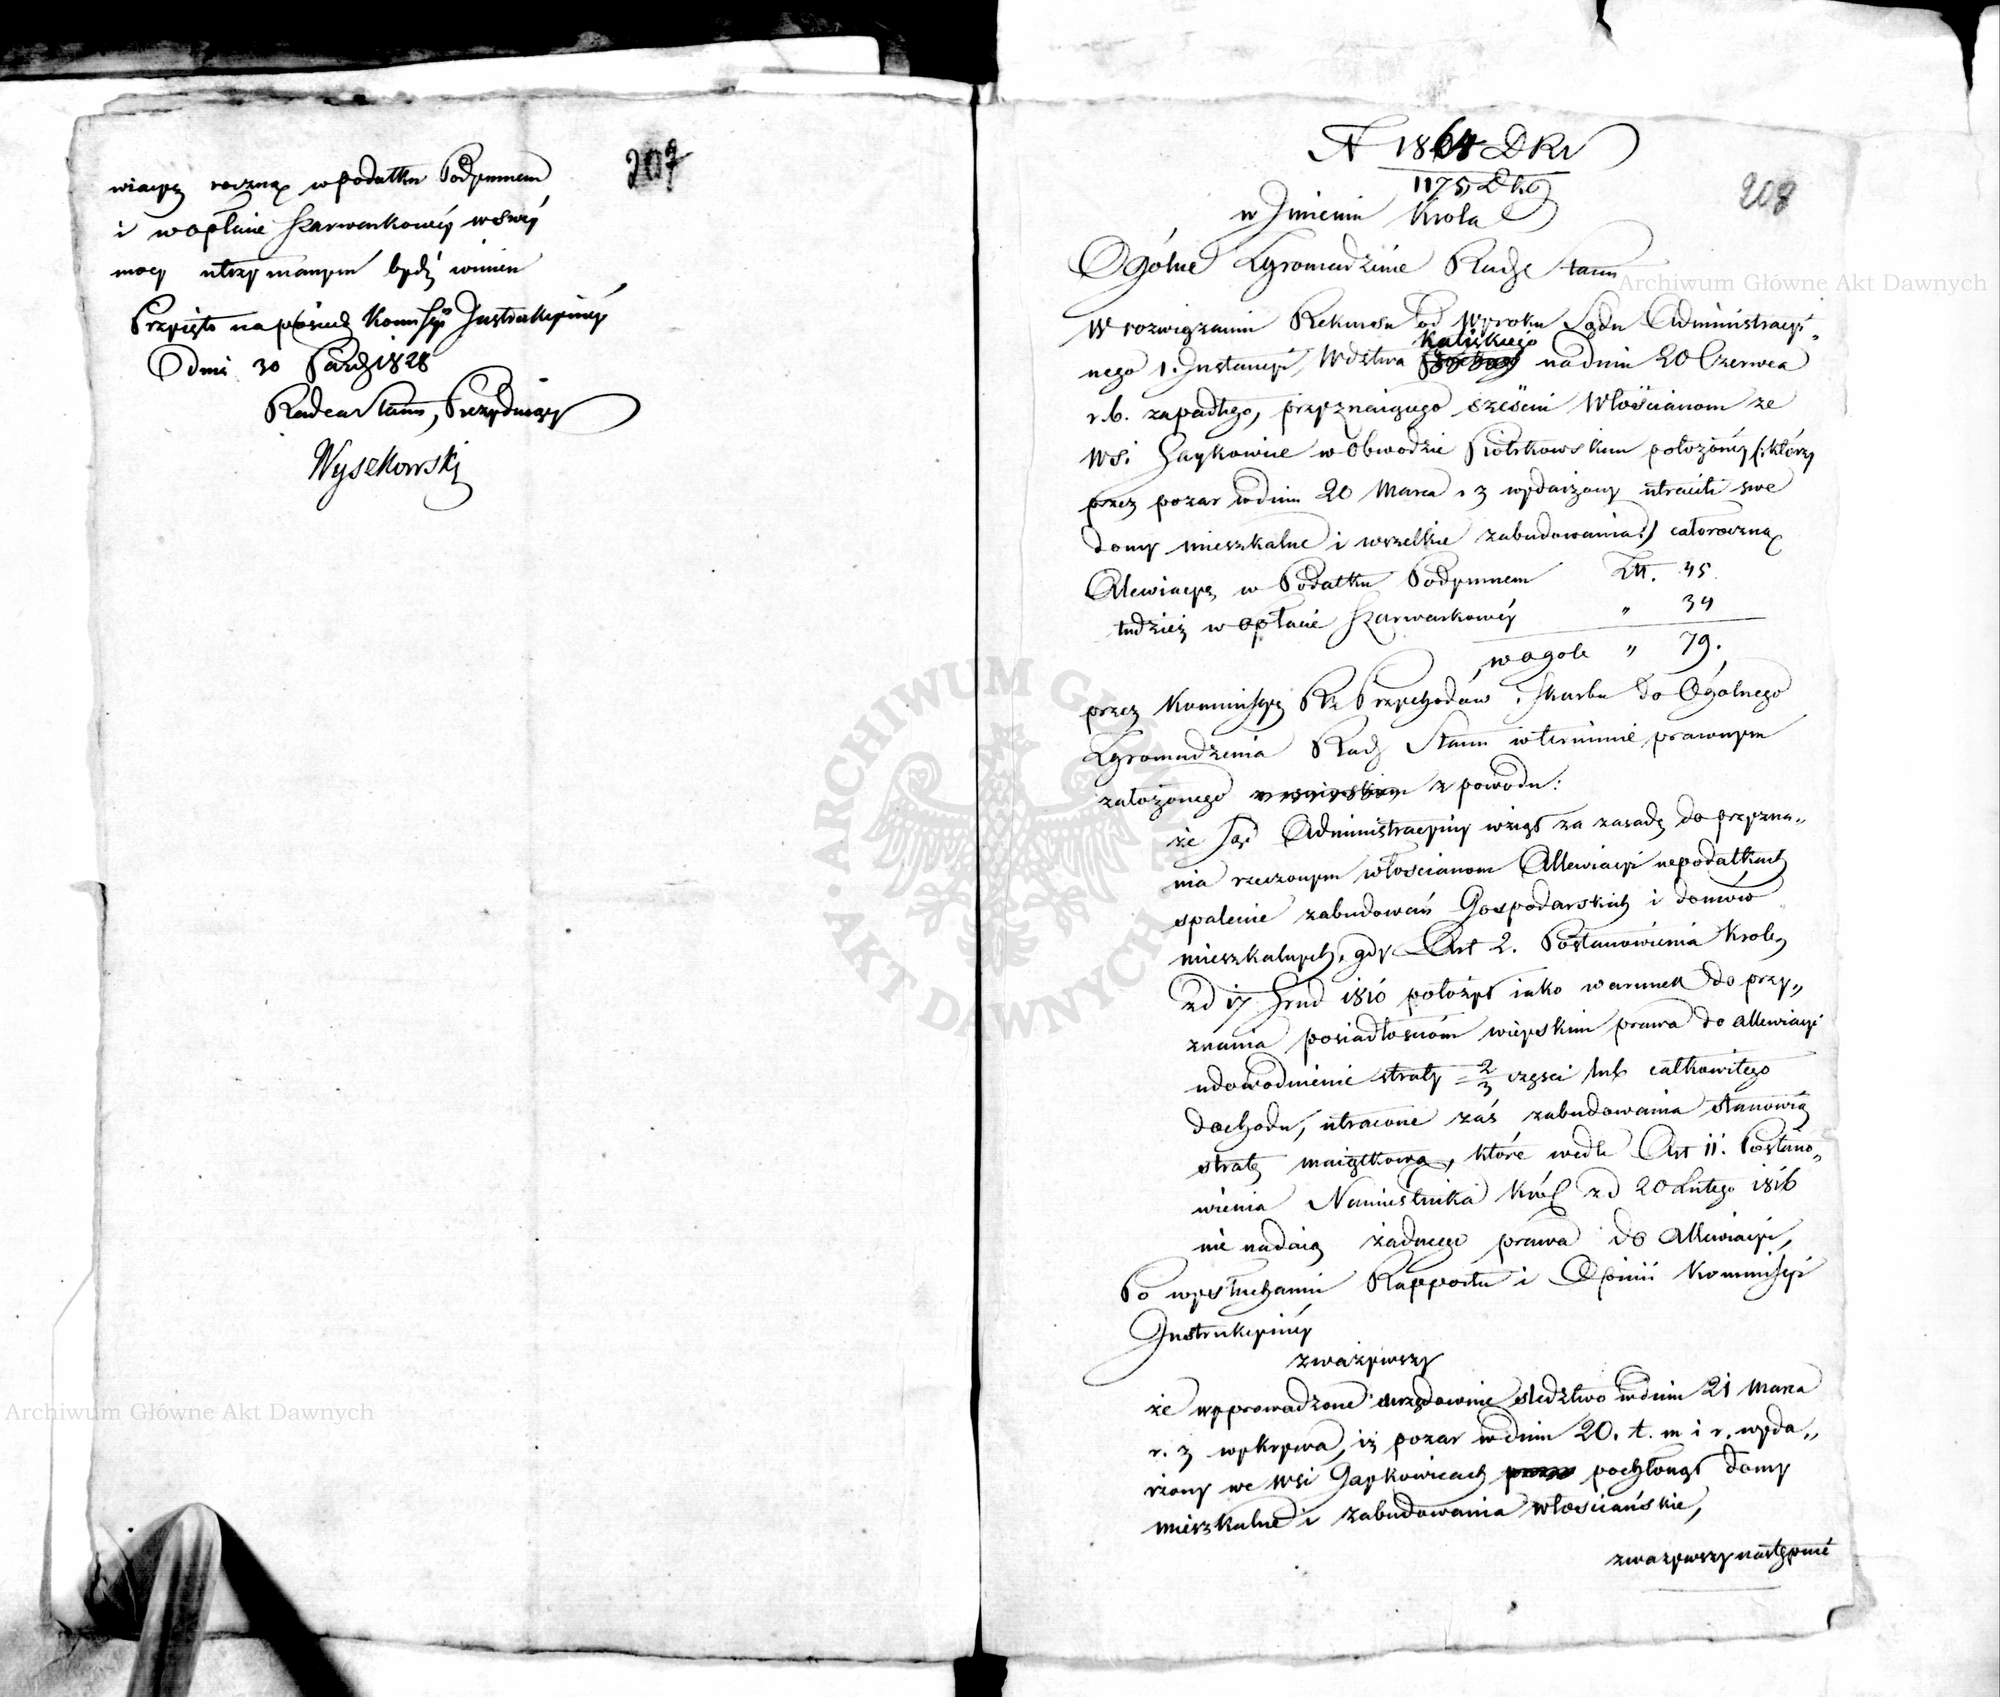 207
wiacyą roczną w podatku Podymnem
i w opłacie Szarwarkowéy w swéy
mocy utrzymanym bydź winien
Przyięto na posiedz Komissyi Instrukcyinéy
Dnia 30 Paźdz 1828
Radca Stanu, Prezyduiący
Wyszkowski
N 1864 DKr
1175 Dkg
208
w Jmieniu Króla
Ogólne Zgromadzenie Rady Stanu
W rozwiązaniu Rekursu od Wyroku Sądu Administracyi-
nego 1. Instancyi, Wdztwa Kaliskiego na dniu 20 Czerwca
r.b. zapadłego, przyznaiącego sześciu Włościanom ze
Wsi Gaykowice w Obwodzie Piotrkowskim położonéy (: którzy
przez pożar w dniu 20 Marca r z wydarzony utracili swe
domy mieszkalne i wszelkie zabudowania:) całoroczną
Allewiacyą w Podatku Podymnem Złt. 45
tudzież w opłacie Szarwarkowéy " 34
w ogóle " 79.
przez Kommissyą Rz Przychodów i Skarbu do Ogólnego
Zgromadzenia Rady Stanu w terminie prawnym
założonego z powodu:
że Sąd Administracyiny wziął za zasadę do przyzna-
nia rzeczonym włościanom Allewiacyi w podatkach
spalenie zabudowań Gospodarskich i domów
mieszkalnych, gdy Art 2. Postanowienia Królew
zd 17 Grud 1810 położył iako warunek do przy-
znania posiadłościom wieyskim prawa do allewiacyi
udowodnienie straty 2/3 części lub całkowitego
dochodu, utracone zaś zabudowania stanowią
stratę maiątkową, które wedle Art 11. Postano-
wienia Namiestnika Król zd 20 Lutego 1816
nie nadaią żadnego prawa do allewiacyi,
Po wysłuchaniu Rapportu i Opinii Kommissyi
Instrukcyinéy
zważywszy
że wyprowadzone urzędownie śledztwo w dniu 21 Marca
r. z wykrywa, iż pożar w dniu 20. t. m i r. wyda-
rzony we Wsi Gaykowicach pochłonął domy
mieszkalne i zabudowania włościańskie,
zważywszy następnie